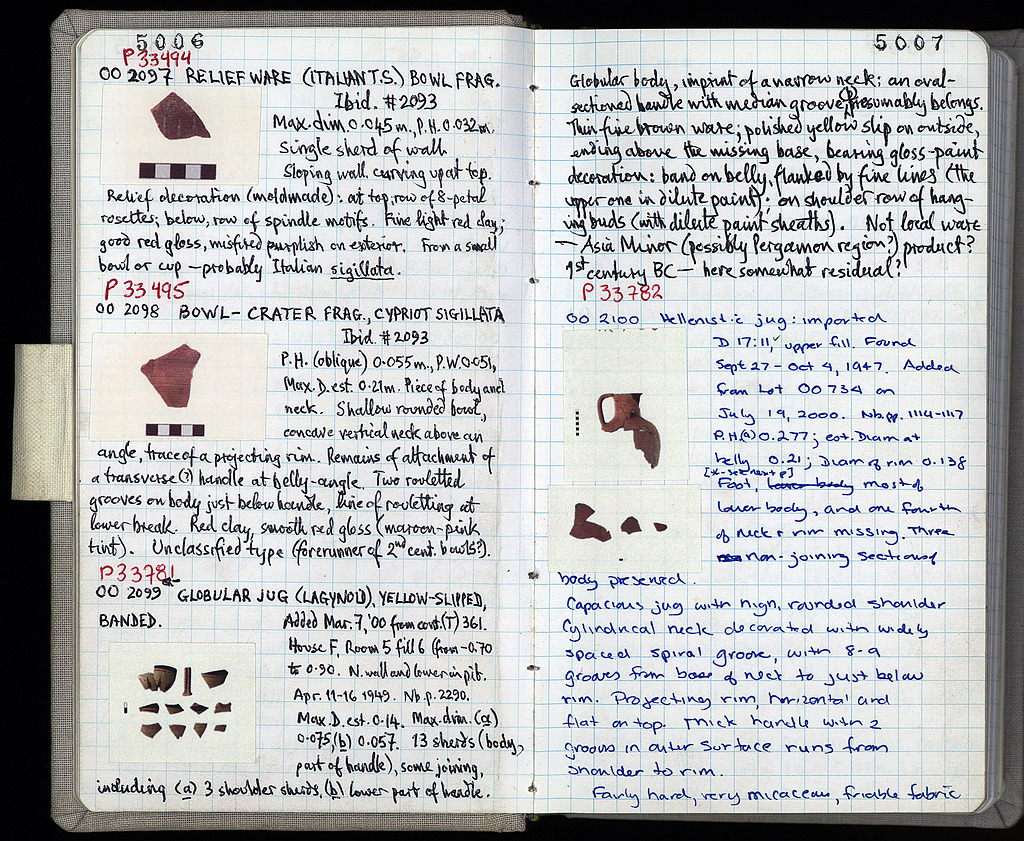 5006
P 33494
OO 2097 RELIEF WARE (ITALIAN T.S.) BOWL FRAG.
Ibid. #2093
Max. dim. 0.045 m., P.H. 0.032 m.
Single sherd of wall.
Sloping wall curving up at top.
Relief decoration (moldmade): at top, row of 8-petal
rosettes; below, row of spindle motifs. Fine light red clay;
good red gloss, misfired purplish on exterior. From a small
bowl or cup – probably Italian sigillata.
P 33495
OO 2098 BOWL-CRATER FRAG., CYPRIOT SIGILLATA
Ibid. #2093
P.H. (oblique) 0.055 m., P.W. 0.051,
Max. D. est. 0.21m. Piece of body and
neck. Shallow rounded bowl,
concave vertical neck above an
angle, trace of a projecting rim. Remains of attachment of
a transverse (?) handle at belly-angle. Two rouletted
grooves on body just below handle, line of rouletting at
lower break. Red clay, smooth red gloss (maroon-pink
tint). Unclassified type (forerunner of 2nd cent. bowls?).
P33781
OO 2099 GLOBULAR JUG (LAGYNOID), YELLOW-SLIPPED,
BANDED.
Added Mar. 7, '00 from cont. (T) 361.
House F, Room 5 fill 6 (from -0.70
to 0.90. N. wall and lower in pit.
Apr. 11-16 1949. Nb. p. 2290.
Max. D. est. 0.14. Max. dim. (a)
0.075, (b) 0.057. 13 sherds (body,
part of handle), some joining,
including (a) 3 shoulder sherds, (b) lower part of handle.
5007
Globular body, imprint of a narrow neck; an oval-
sectioned handle with median groove (b) presumably belongs.
Thin fine brown ware; polished yellow slip on outside,
ending above the missing base, bearing gloss-paint
decoration: band on belly, flanked by fine lines (the
upper one in dilute paint); on shoulder row of hang-
ing buds (with dilute paint sheaths). Not local ware
– Asia Minor (possibly Pergamon region?) product?
1st century BC – here somewhat residual?
P 33782
OO 2100 Hellenistic jug: imported
D 17:11, upper fill. Found
Sept 27 – Oct 4, 1947. Added
from Lot OO 734 on
July 19, 2000. Nb pp. 1114-1117
P.H. (a) 0.277; est. Diam at
belly 0.21; Diam of rim 0.138
[*-see next p]
Foot, lower body most of
lower body, and one fourth
of neck & rim missing. Three
non-joining sections of
body preserved.
Capacious jug with high, rounded shoulder
Cylindrical neck decorated with widely
spaced spiral groove, with 8-9
grooves from base of neck to just below
rim. Projecting rim, horizontal and
flat on top. Thick handle with 2
grooves in outer surface runs from
shoulder to rim.
Fairly hard, very micaceous, friable fabric